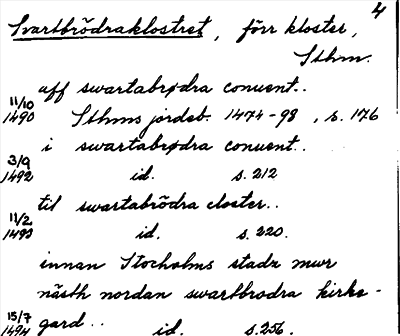 4
Svartbrödraklostret, förr kloster,
Sthm.
aff swartabrødra conuent..
11/10 1490 Sthms jordeb. 1474-98, s. 176
i swartabrødra conuent..
3/9 1492 id. s. 212
til swartabrödra closter..
11/2 1493 id. s. 220.
innan Stocholms stadz mwr
nästh nordan swartbrodra kirke-
gard..
15/7 1494 id. s. 256.